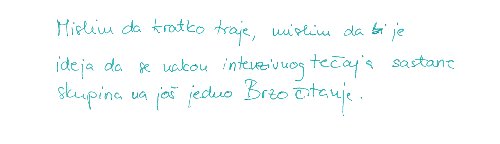 Mislim da kratko traje, mislim da bi je
ideja da se nakon intenzivnog tečaja sastane
skupina na još jedno Brzo čitanje.